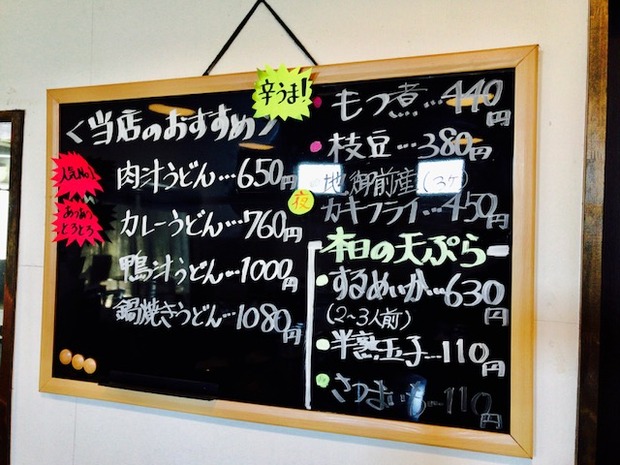 <当店のおすすめ>
人気No.1
肉汁うどん…650円
あつあつ
とろとろ
カレーうどん…760円
鴨汁うどん…1000円
鍋焼きうどん…1080円
辛うま!
もつ煮…440円
枝豆…380円
地御前産(3ケ)
夜
カキフライ…450円
本日の天ぷら
するめいか…630円
(2~3人前)
半熟玉子…110円
さつまいも…110円